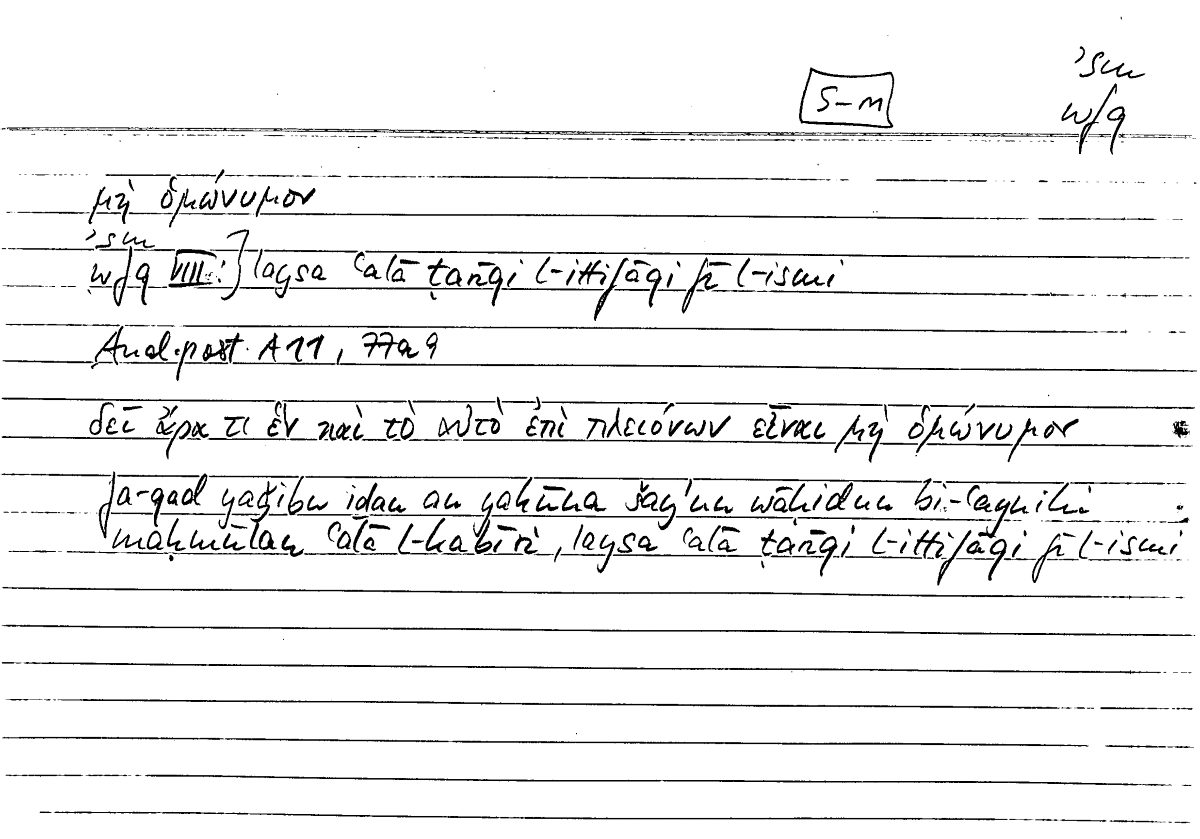 ʾsm
S–m
w/q
μὴ ὁμώνυμον
ʾsm
w/q VIII:] laysa ʿalā ṭarīqi l-ittifāqi fī l-ismi
Anal. post. A 11, 77a9
δεῖ ἄρα τι ἓν καὶ τὸ αὐτὸ ἐπὶ πλειόνων εἶναι μὴ ὁμώνυμον
fa-qad yaǧibu iḏan an yakūna šayʾun wāḥidun bi-ʿaynihi
maḥmūlan ʿalā l-kaṯīri, laysa ʿalā ṭarīqi l-ittifāqi fī l-ismi